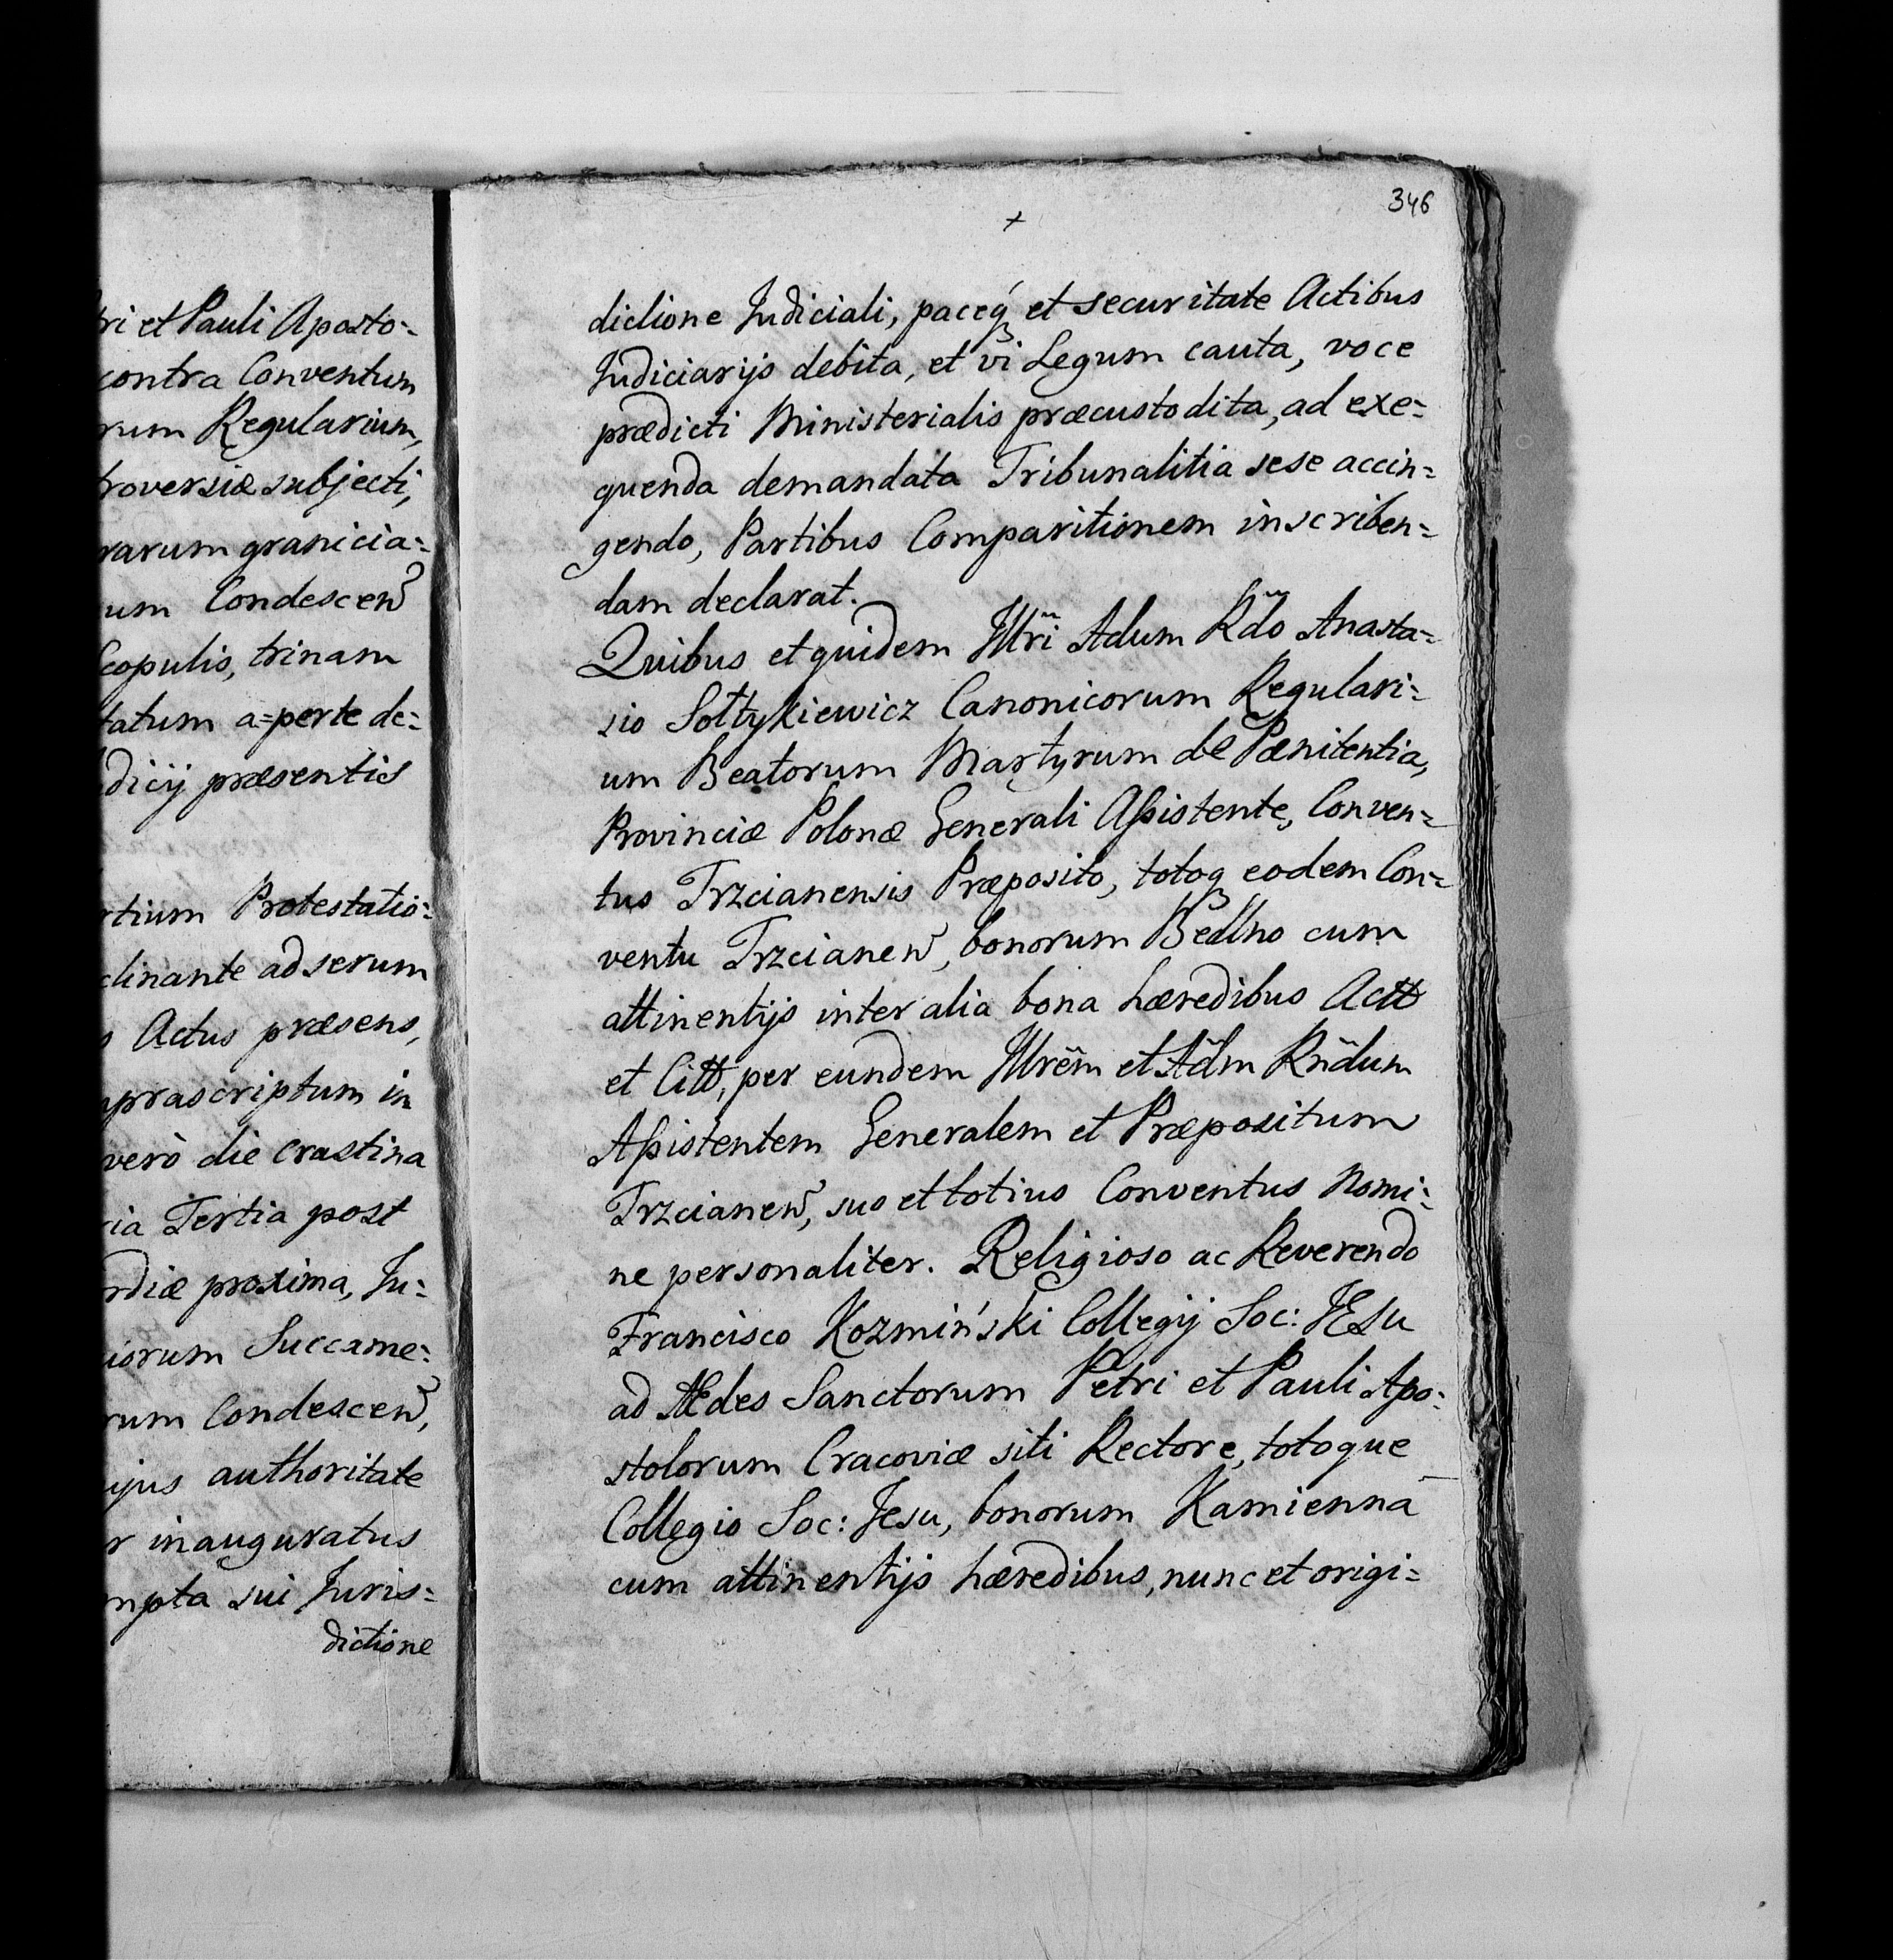 ri et Pauli Aposto=
contra Conventum
rum Regularium,
roversiæ subjecti,
rarum granicia=
um Condescen̄
copulis, trinam
tatum a=perte de=
dicij præsentis
rtium Protestatio=
clinante ad serum
Actus præsens,
prascriptum in
verò die crastina
ia Tertia post
rdiæ proxima, Ju=
iorum Succame=
rum Condescen̄,
ijus authoritate
r inauguratus
mpta sui Juris=
dictione
346
dictione Judiciali, paceq́ꝫ et securitate Actibus
Judiciarijs debita, et vi Legum cauta, voce
prædicti Ministerialis præcustodita, ad exe=
quenda demandata Tribunalitia sese accin=
gendo, Partibus Comparitionem inscriben=
dam declarat.
Quibus et quidem Illr̃i Adum Rd̃o Anasta=
sio Sołtykiewicz Canonicorum Regulari=
um Beatorum Martyrum de Pænitentia,
Provinciæ Polonæ Generali Assistente, Conven=
tus Trzcianensis Præposito, totoqꝫ eodem Con=
ventu Trzcianen̄, bonorum Bedlno cum
attinentijs inter alia bona hæredibus Actt
et Citt, per eundem Illrẽm et Ad̃m Rñdum
Assistentem Generalem et Præpositum
Trzcianen̄, suo et totius Conventus Nomi=
ne personaliter. Religioso ac Reverendo
Francisco Kozmiński Collegij Soc: JESu
ad Ædes Sanctorum Petri et Pauli Apo=
stolorum Cracoviæ siti Rectore, totoque
Collegio Soc: Jesu, bonorum Kamienna
cum attinentijs hæredibus, nunc et origi=